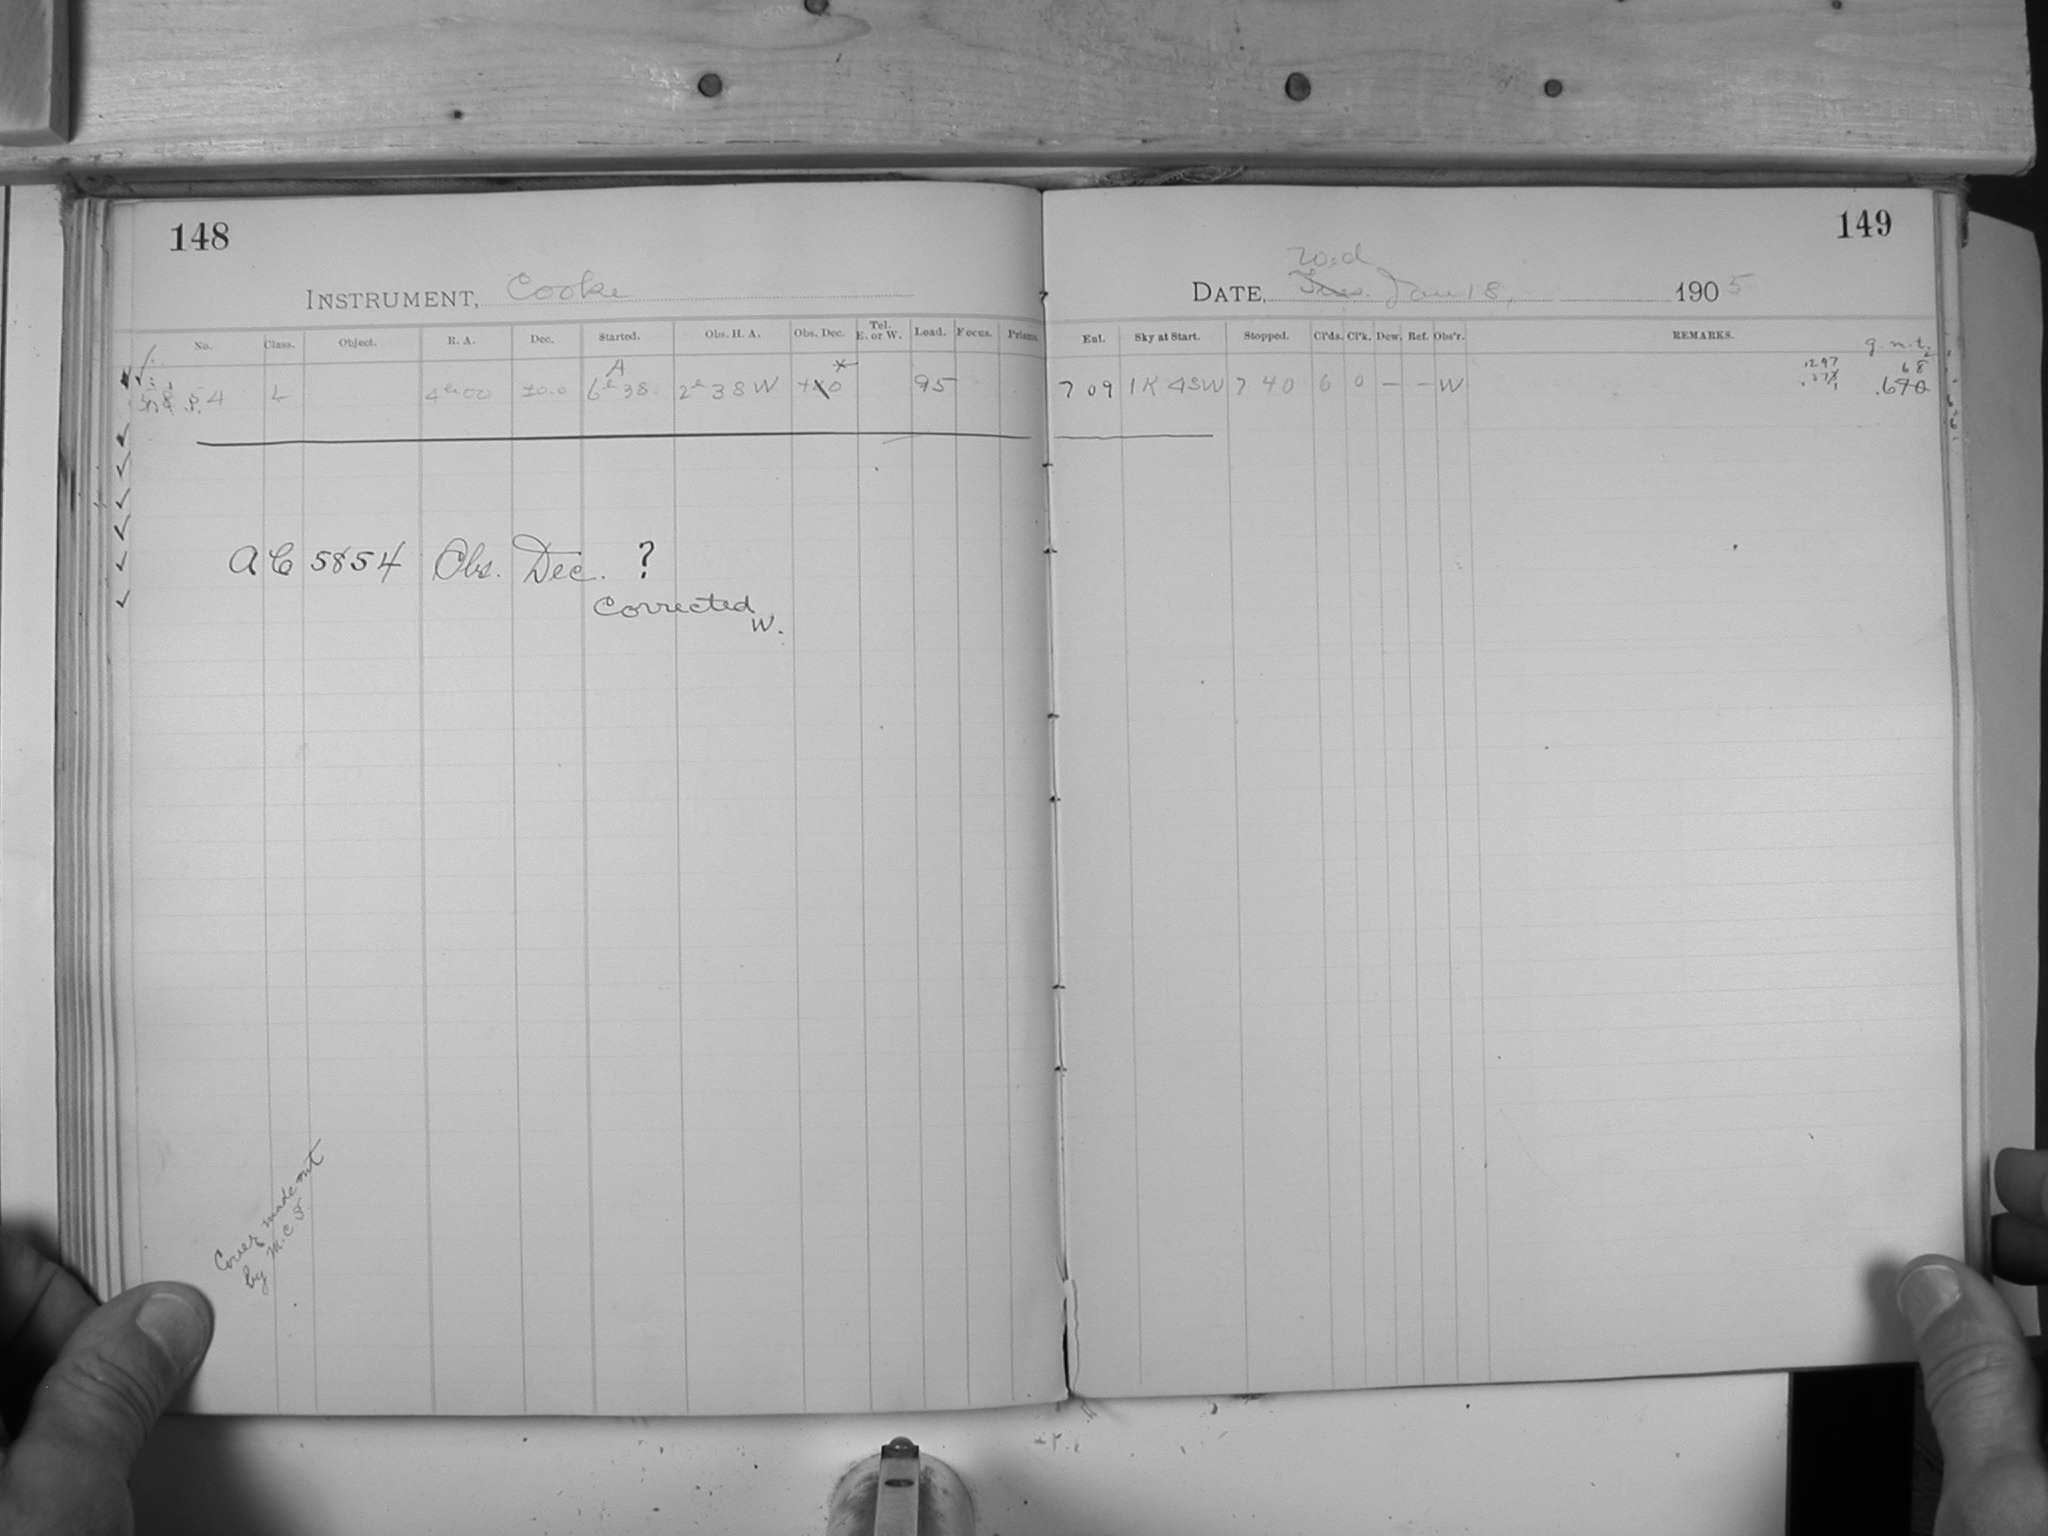 148
INSTRUMENT, Cooke
No. Class. Object. R. A. Dec. Started. Obs. H. A. Obs. Dec. Tel. E. or W. Load. Focus. Prisms.
A
L 4h00 ±0.0 6h38. 2h38W 0 95
AC 5854 Obs. Dec. ?
Corrected
W.
Cover made out
by M.C.S.
149
Wed
DATE, Tues. Jan 18, 1905
Ent. Sky at Start. Stopped. Cl'ds. Cl'k. Dew. Ref. Obs'r. REMARKS.
g.m.t.
7 09 1K 4SW 7 40 6 0 – – W